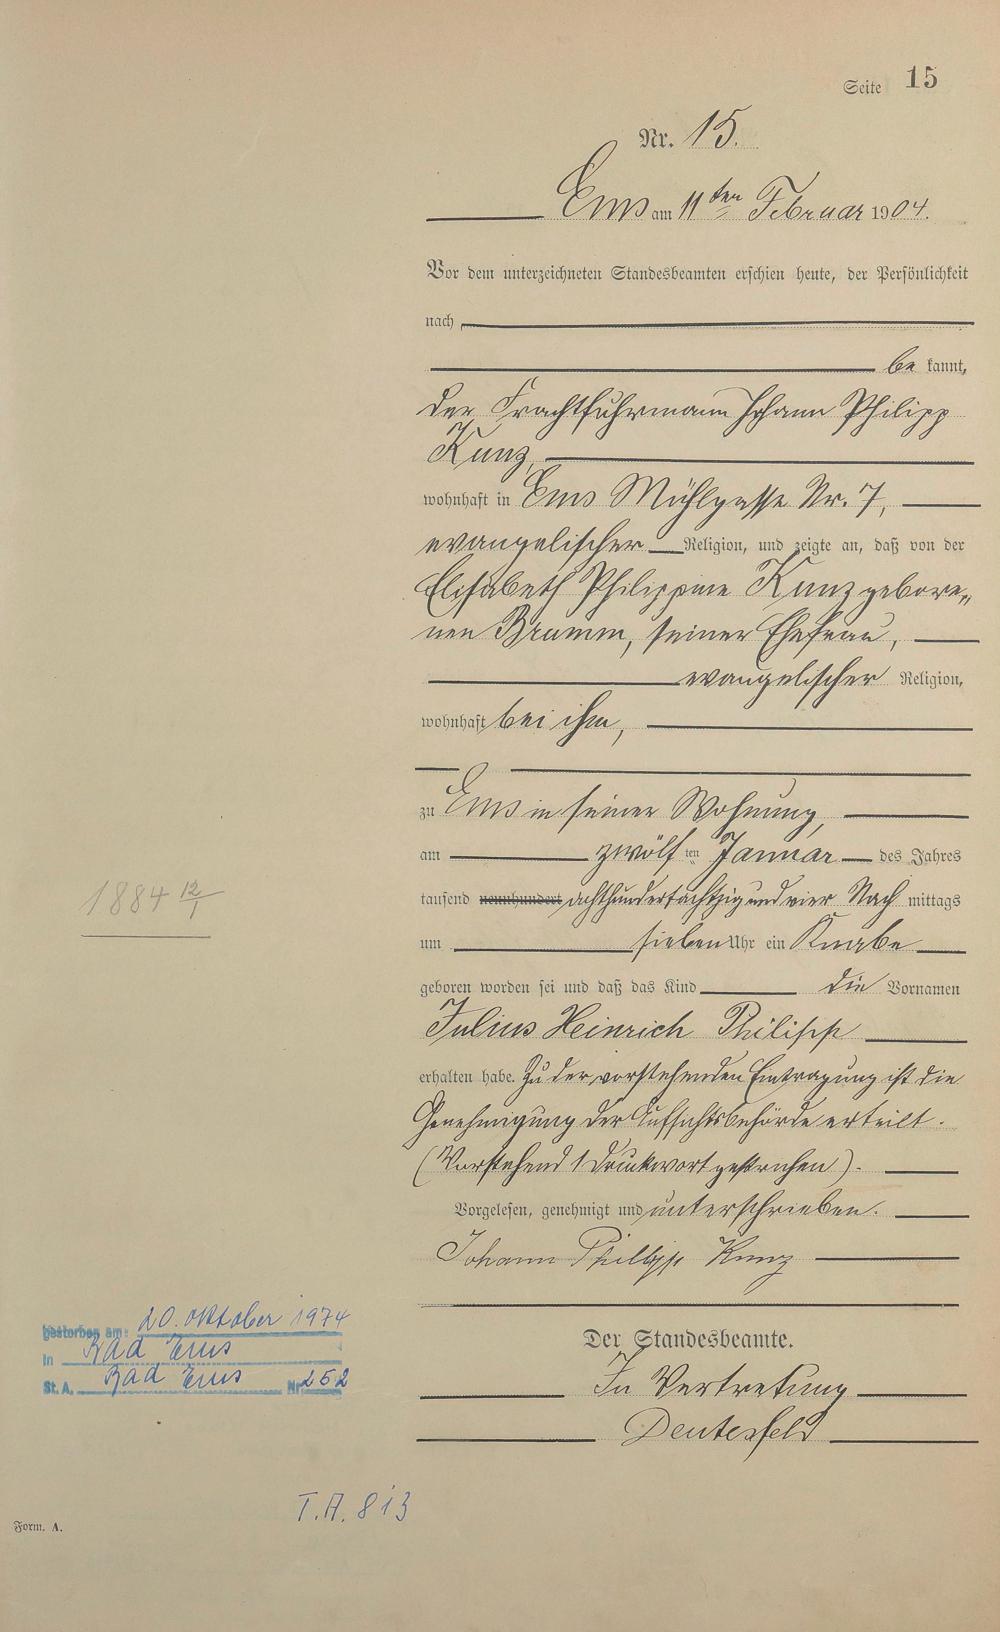 Seite 15
Nr. 15.
Ems am 11ten Februar 1904.
Vor dem unterzeichneten Standesbeamten erschien heute, der Persönlichkeit
nach
be kannt,
der Frachtfuhrmann Johann Philipp
Kunz,
wohnhaft in Ems Mühlgasse Nr. 7,
evangelischer Religion, und zeigte an, daß von der
Elisabeth Philippine Kunz gebore„
nen Bramm, seiner Ehefrau,
evangelischer Religion,
wohnhaft bei ihm,
zu Ems in seiner Wohnung,
am zwölf ten Januar des Jahres
tausend neunhundert achthundertachtzigundvier Nach mittags
um sieben Uhr ein Knabe
geboren worden sei und daß das Kind die Vornamen
Julius Heinrich Philipp
erhalten habe. Zu der vorstehenden Eintragung ist die
Genehmigung der Aufsichtsbehörde erteilt.
(Vorstehend 1 Druckwort gestrichen).
Vorgelesen, genehmigt und unterschrieben.
Johann Philipp Kunz
Der Standesbeamte.
In Vertretung
Deutesfeld
1884 12/1
gestorben am: 20. Oktober 1974
in Bad Ems
St. A. Bad Ems Nr. 252
T.A. 813
Form. A.